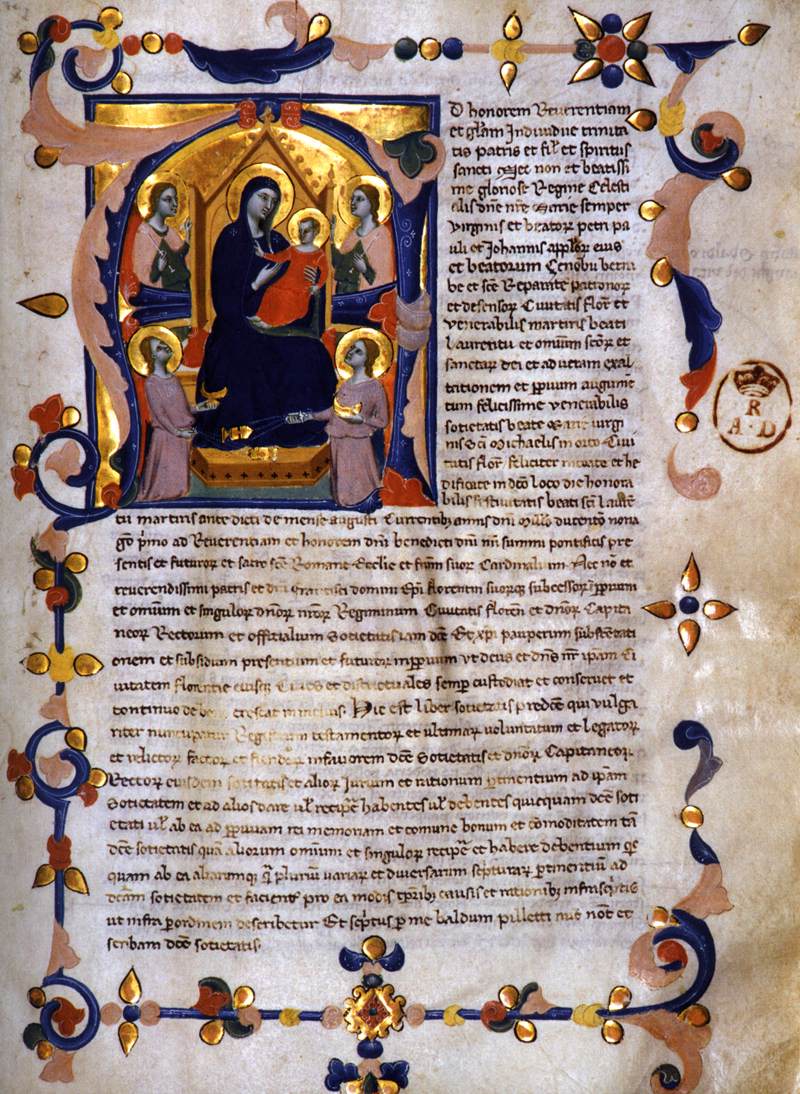 D honorem Reuerentiam
et gl̄am Indiuidue trinita
tis patris et fil̄ et spiritus
sancti Nec non et beatissi
me gloriose Regine Celesti
alis dn̄e nr̄e Marie semper
virginis et beatorꝝ petri pa
uli et Johannis appl̄orꝝ eius
et beatorum Cenobii
be et sc̄e Reparate patronorꝝ
et defensorꝝ Ciuitatis flor̄ et
venerabilis martiris beati
Laurentii et omnium sc̄orꝝ et
sanctarꝝ dei et ad uetam exal
tationem et ꝑpiuum augume̅
tum felicissime venerabilis
sotietatis beate Marie uirgi
nis Sc̄i Michaelis in orto Ciui
tatis flor̄ feliciter et he
dificate in dc̄o loco die honora
bilis festiuitatis beati sc̄i Laure̅
tii martiris ante dicti de mense augusti Currentibꝫ annis dn̄i Mill̄o ducento nona
go p̄mo ad Reuerentiam et honorem dn̄i benedicti dn̄i nr̄i summi pontificis pre
sentis et futurorꝝ et sacre sc̄e Romane Eccl̄ie et fr̄um suorꝝ Cardinaliu̅ Nec no̅ et
reuerendissimi patris et dn̄i francisci domini Ep̄i florentin̄ suorūqꝫ subcessorꝝ ꝑpiuum
et omnium et singulorꝝ dn̄orꝝ nr̄orꝝ Regiminum Ciuitatis floren̄ et dn̄orꝝ Capita
neorꝝ Rectorum et offitialium Sotietatis iam dc̄e Et xp̄i pauperum substentati
onem et subsidium presentium et futurorꝝ in ꝑpiuum vt deus et dn̄s nr̄ ipsam Ci
uitatem florentie eiusqꝫ Ciues et districtuales semper custodiat et conseruet et
continuo de bono crescat in melius. Hic est liber sotietatis predc̄e qui vulga
riter nuncupatur Registrum testamentorꝝ et ultimarꝝ uoluntatum et legatorꝝ
et relictorꝝ factorꝝ et fiendorꝝ in fauorem dc̄e Sotietatis et dn̄orꝝ Capitaneorꝝ
Rectorꝝ eiusdem sotietatis et aliorꝝ Jurium et rationum ꝑtinentium ad ip̄am
Sotietatem et ad alios dare ul̄ recipe̅ habentes ul̄ debentes quicquam dc̄e soti
etati ul̄ ab ea ad ꝑpiuam rei memoriam et comune bonum et co̅moditatem ta̅
dc̄e sotietatis qua̅ aliorum omnium et singulorꝝ recipe̅ et habere debentium
quam ab ea plurimu̅ uariarꝝ et diuersarum scripturarꝝ ꝑtinentiu̅ ad
dc̄am sotietatem et facient̄ pro ea modis te̅poribꝫ causis et rationibꝫ infrascriptis
ut infra ꝑ ordinem describetur Et scriptus ꝑ me baldum pilletti not̄ et
scribam dc̄e sotietatis.
R
A D